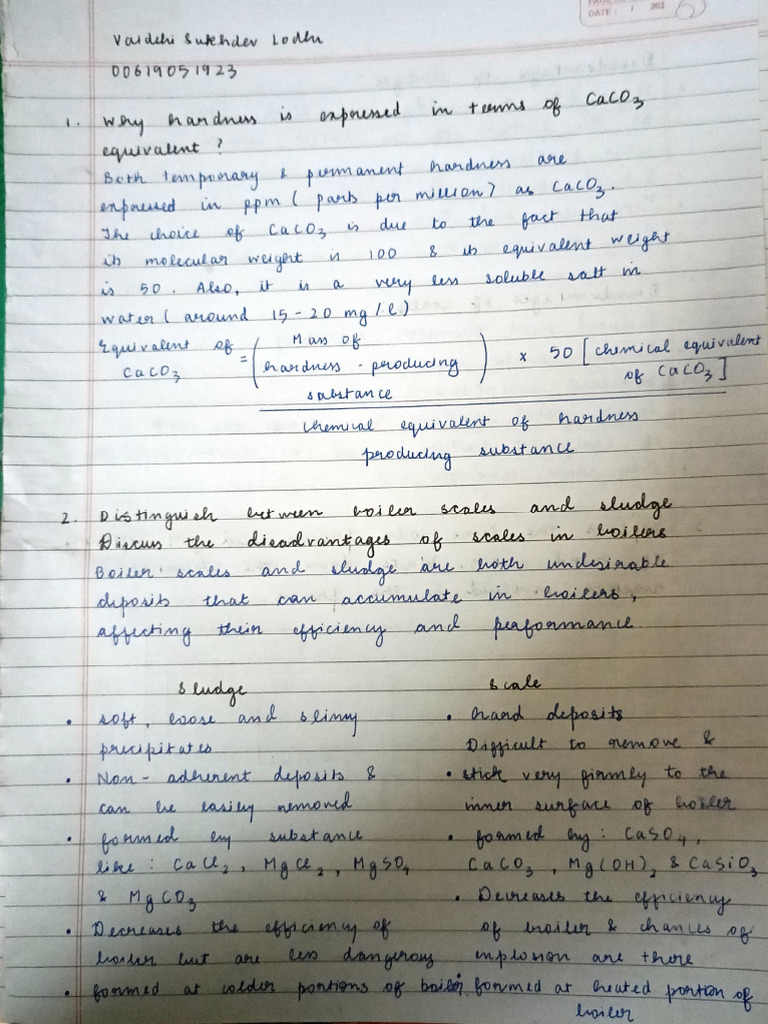 DATE: / 202
Vaidehi Sukhdev Lodhi
00619051923
1. Why hardness is expressed in terms of CaCO3
equivalent?
Both temporary & permanent hardness are
expressed in ppm (parts per million) as CaCO3.
The choice of CaCO3 is due to the fact that
its molecular weight is 100 & its equivalent weight
is 50. Also, it is a very less soluble salt in
water (around 15-20 mg/l)
Equivalent of CaCO3 = (Mass of hardness-producing substance) x 50 [chemical equivalent of CaCO3]
chemical equivalent of hardness
producing substance
2. Distinguish between boiler scales and sludge
Discuss the disadvantages of scales in boilers
Boiler scales and sludge are both undesirable
deposits that can accumulate in boilers,
affecting their efficiency and performance.
Sludge
• soft, loose and slimy
precipitates
• Non-adherent deposits &
can be easily removed
• formed by substance
like: CaCl2, MgCl2, MgSO4
& MgCO3
• Decreases the efficiency of
boiler but are less dangerous
• formed at colder portions of boiler
Scale
• hard deposits
Difficult to remove &
• stick very firmly to the
inner surface of boiler
• formed by: CaSO4,
CaCO3, Mg(OH)2 & CaSiO3
• Decreases the efficiency
of boiler & chances of
explosion are there
• formed at heated portion of
boiler